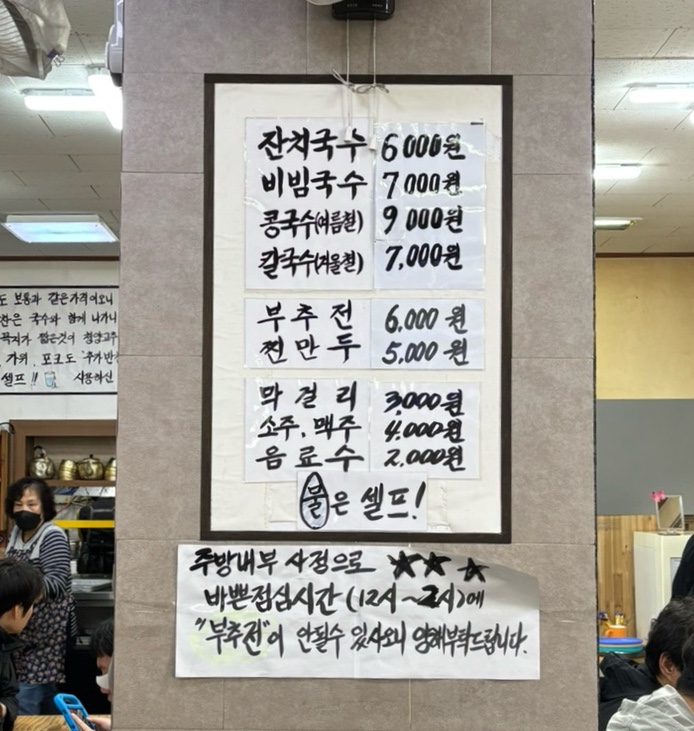 잔치국수 6000원
비빔국수 7000원
콩국수(여름철) 9000원
칼국수(겨울철) 7,000원
부추전 6,000원
찐만두 5,000원
막걸리 3,000원
소주,맥주 4,000원
음료수 2,000원
물은 셀프!
주방내부 사정으로 ★★★
바쁜점심시간(12시~2시)에
"부추전"이 안될수 있사오니 양해부탁드립니다.
도 보통과 같은가격이오니
찬은 국수와 함께 나가니
짧은것이 청양고추
가위, 포크도
셀프!! 사용하신